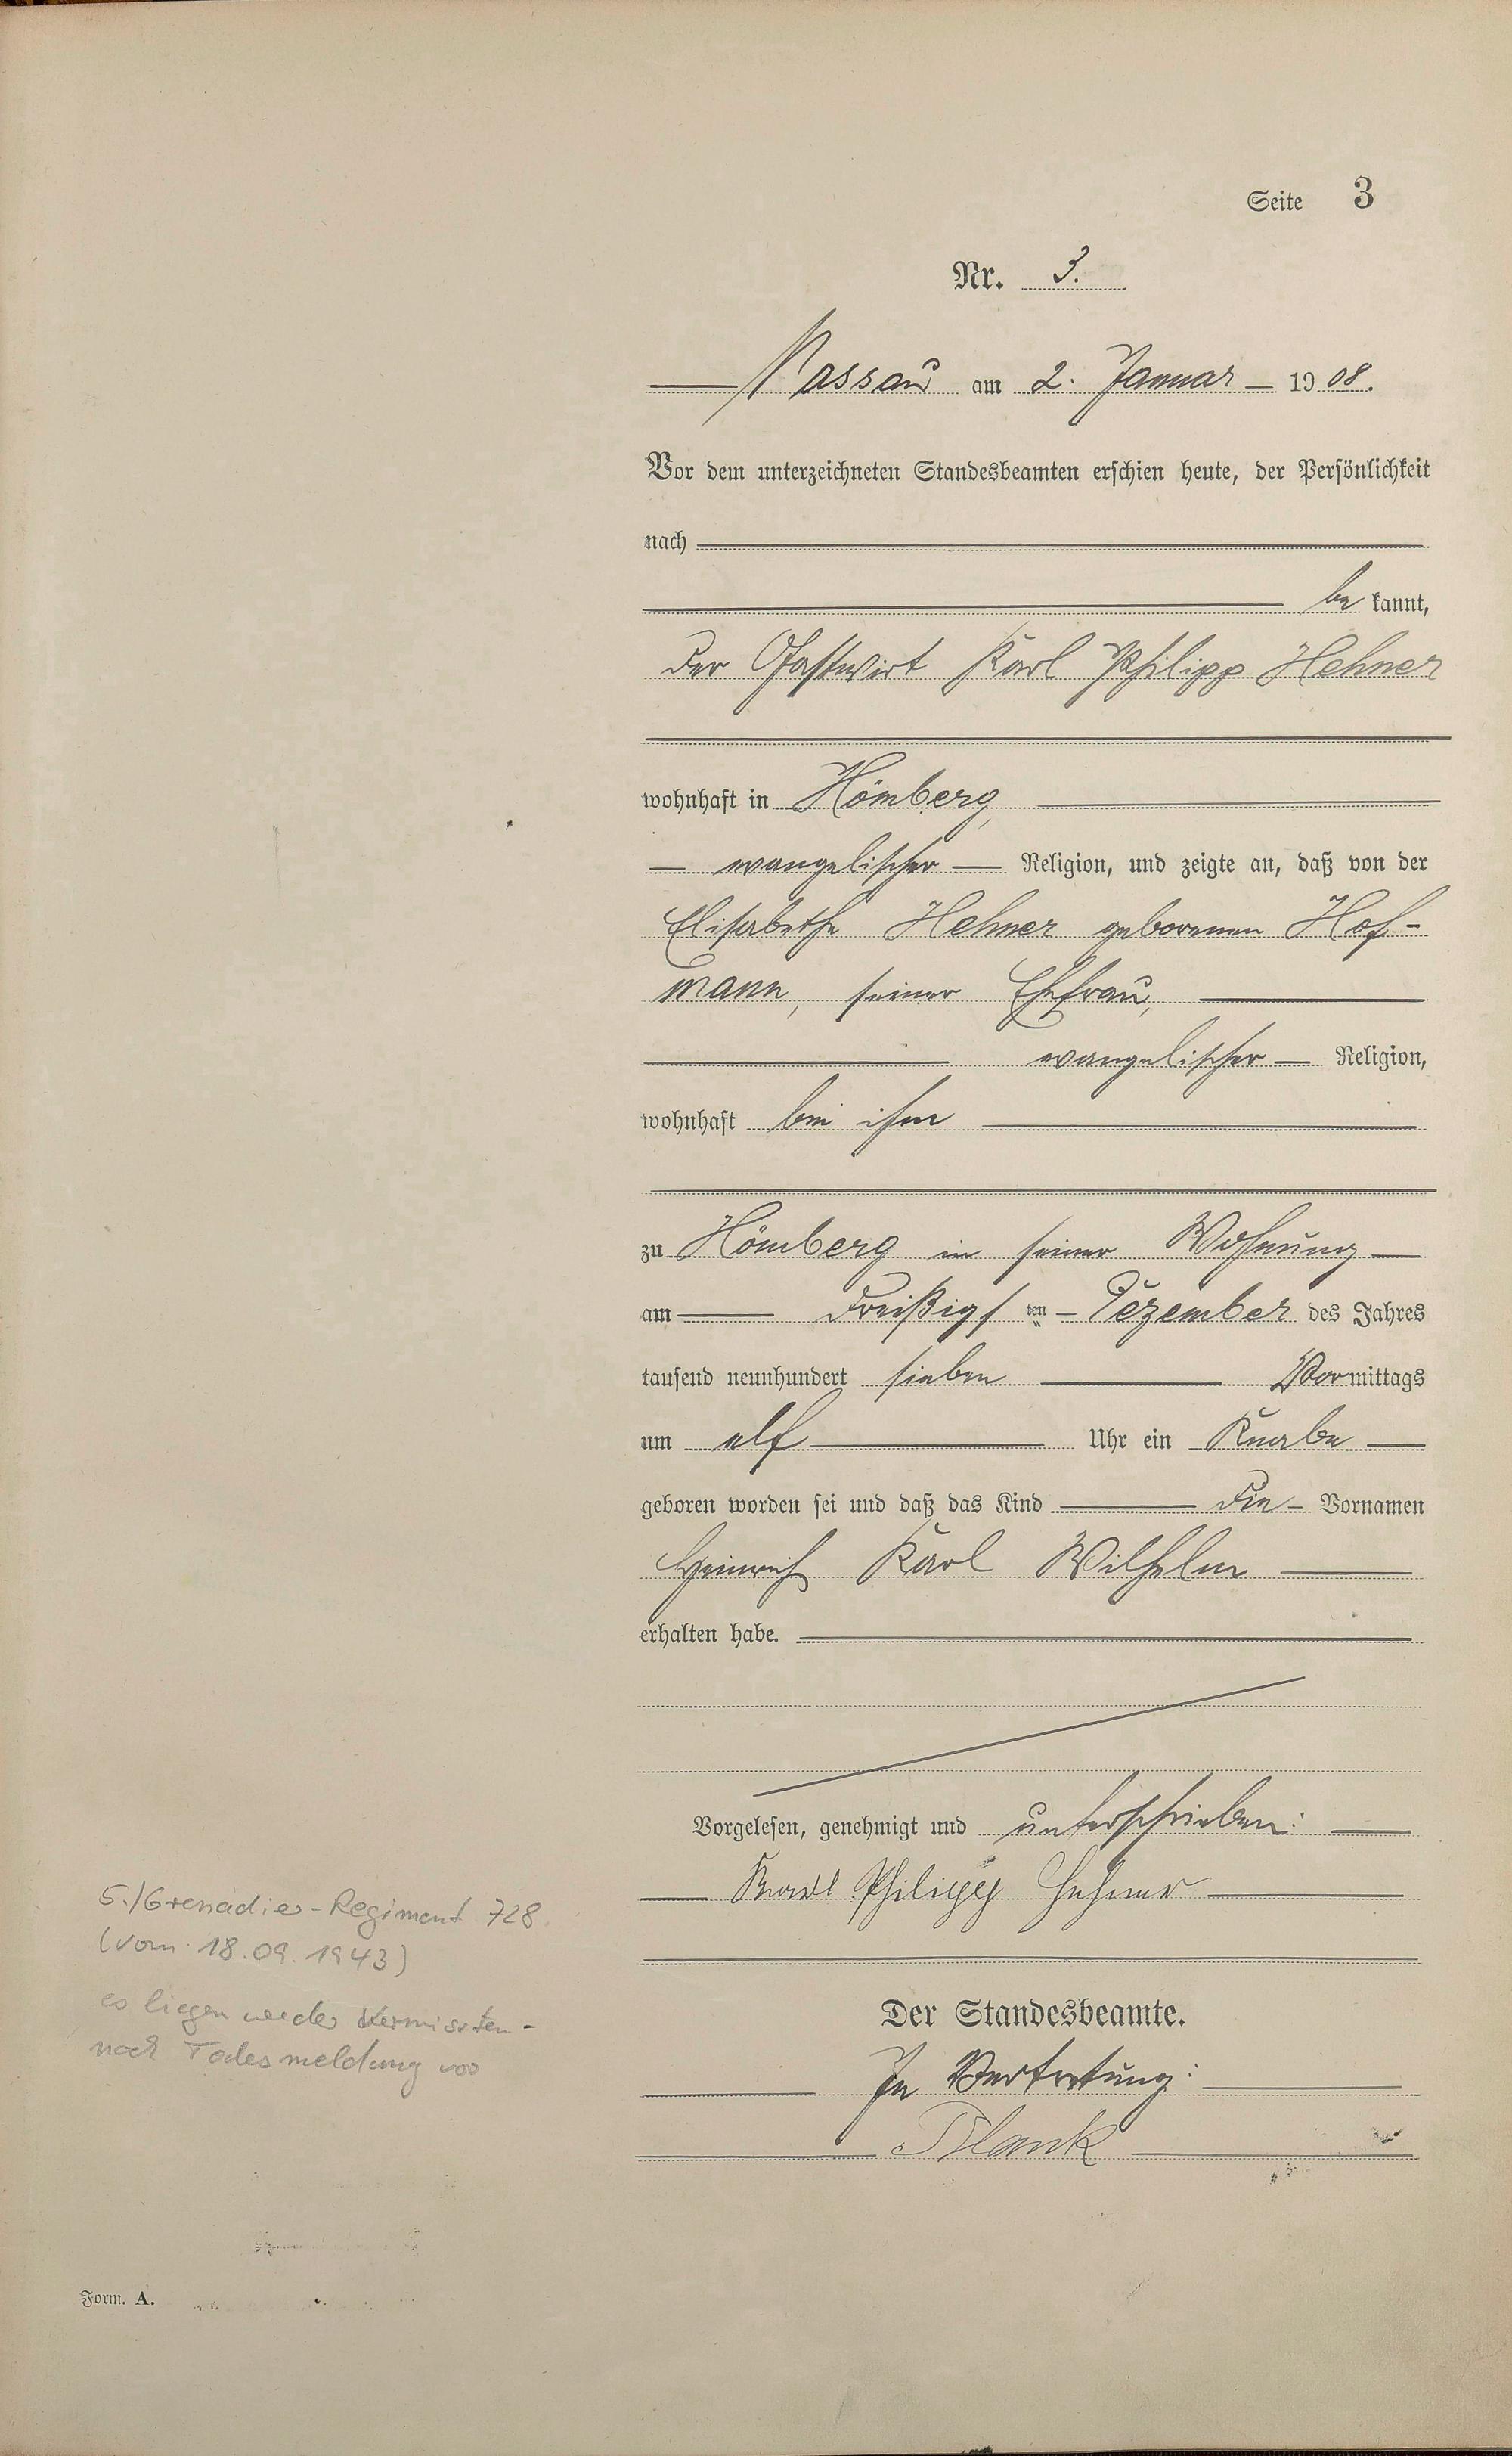 Seite 3
Nr. 3.
Nassau am 2. Januar 1908.
Vor dem unterzeichneten Standesbeamten erschien heute, der Persönlichkeit
nach
be kannt,
der Gastwirt Karl Philipp Hehner
wohnhaft in Hömberg,
evangelischer Religion, und zeigte an, daß von der
Elisabethe Hehner geborenen Hof-
mann, seiner Ehefrau,
evangelischer Religion,
wohnhaft bei ihm
zu Hömberg in seiner Wohnung
am dreißigsten Dezember des Jahres
tausend neunhundert sieben Vormittags
um elf Uhr ein Knabe
geboren worden sei und daß das Kind die Vornamen
Heinrich Karl Wilhelm
erhalten habe.
Vorgelesen, genehmigt und unterschrieben:
Karl Philipp Hehner
5./Grenadier-Regiment 728
(vom 18.09.1943)
es liegen weder Vermissten-
noch Todesmeldung vor
Der Standesbeamte.
In Vertretung:
Blank
Form. A.